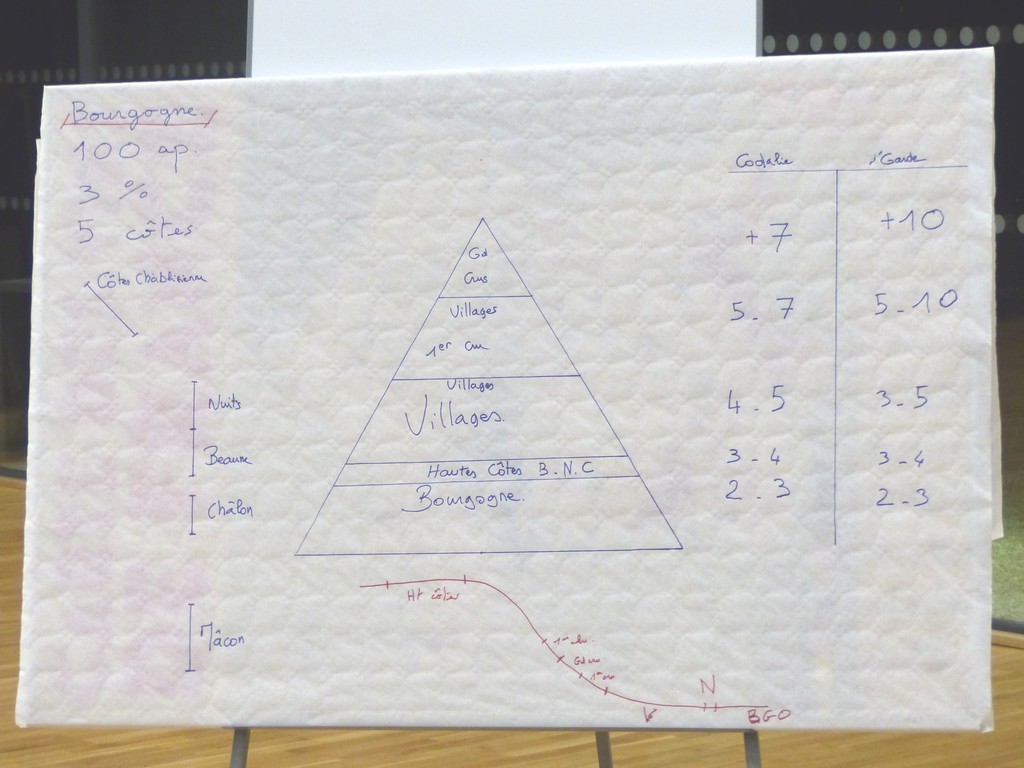 Bourgogne.
100 ap.
3 %
5 côtes
Côtes Chablisienne
Nuits
Beaune
Châlon
Mâcon
Gd
Crus
Villages
1er cru
Villages
Villages.
Hautes Côtes B.N.C
Bourgogne.
Codalie
+ 7
5 - 7
4 - 5
3 - 4
2 - 3
d'Garde
+10
5 - 10
3 - 5
3 - 4
2 - 3
Ht côtes
1er cru.
Gd cru
1er cru
V
N
BGO